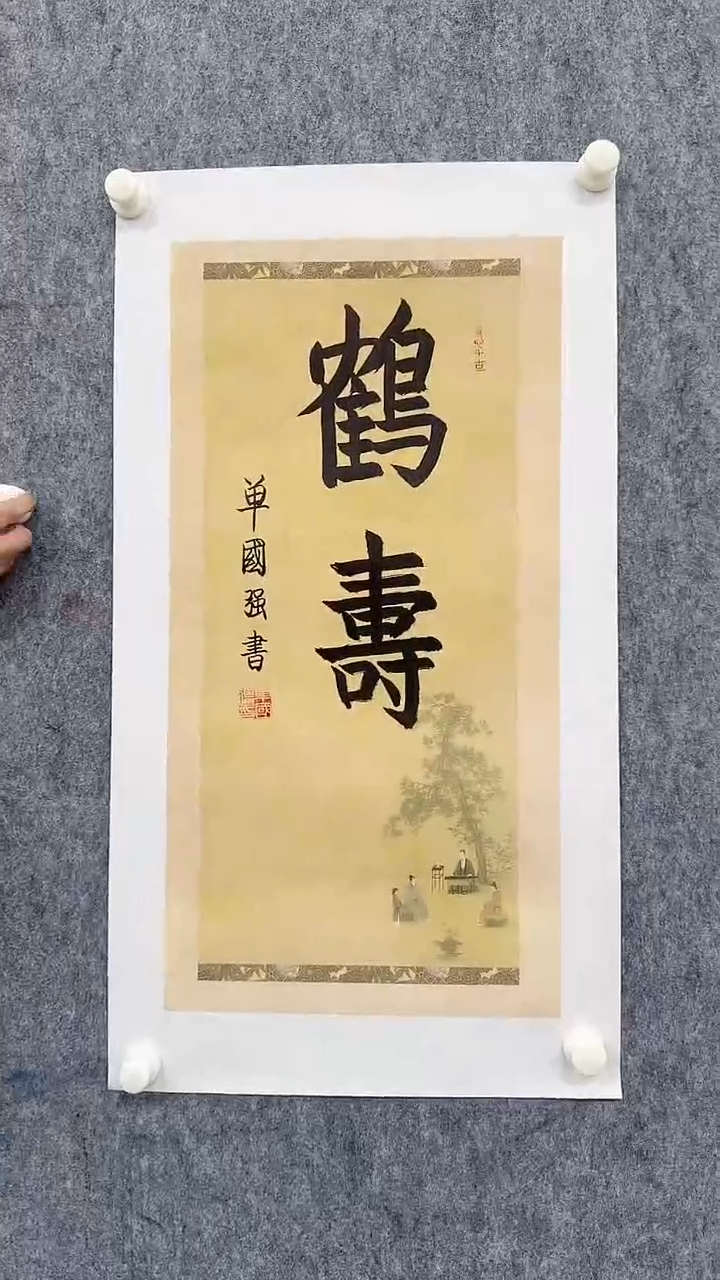 鶴壽
单國强書